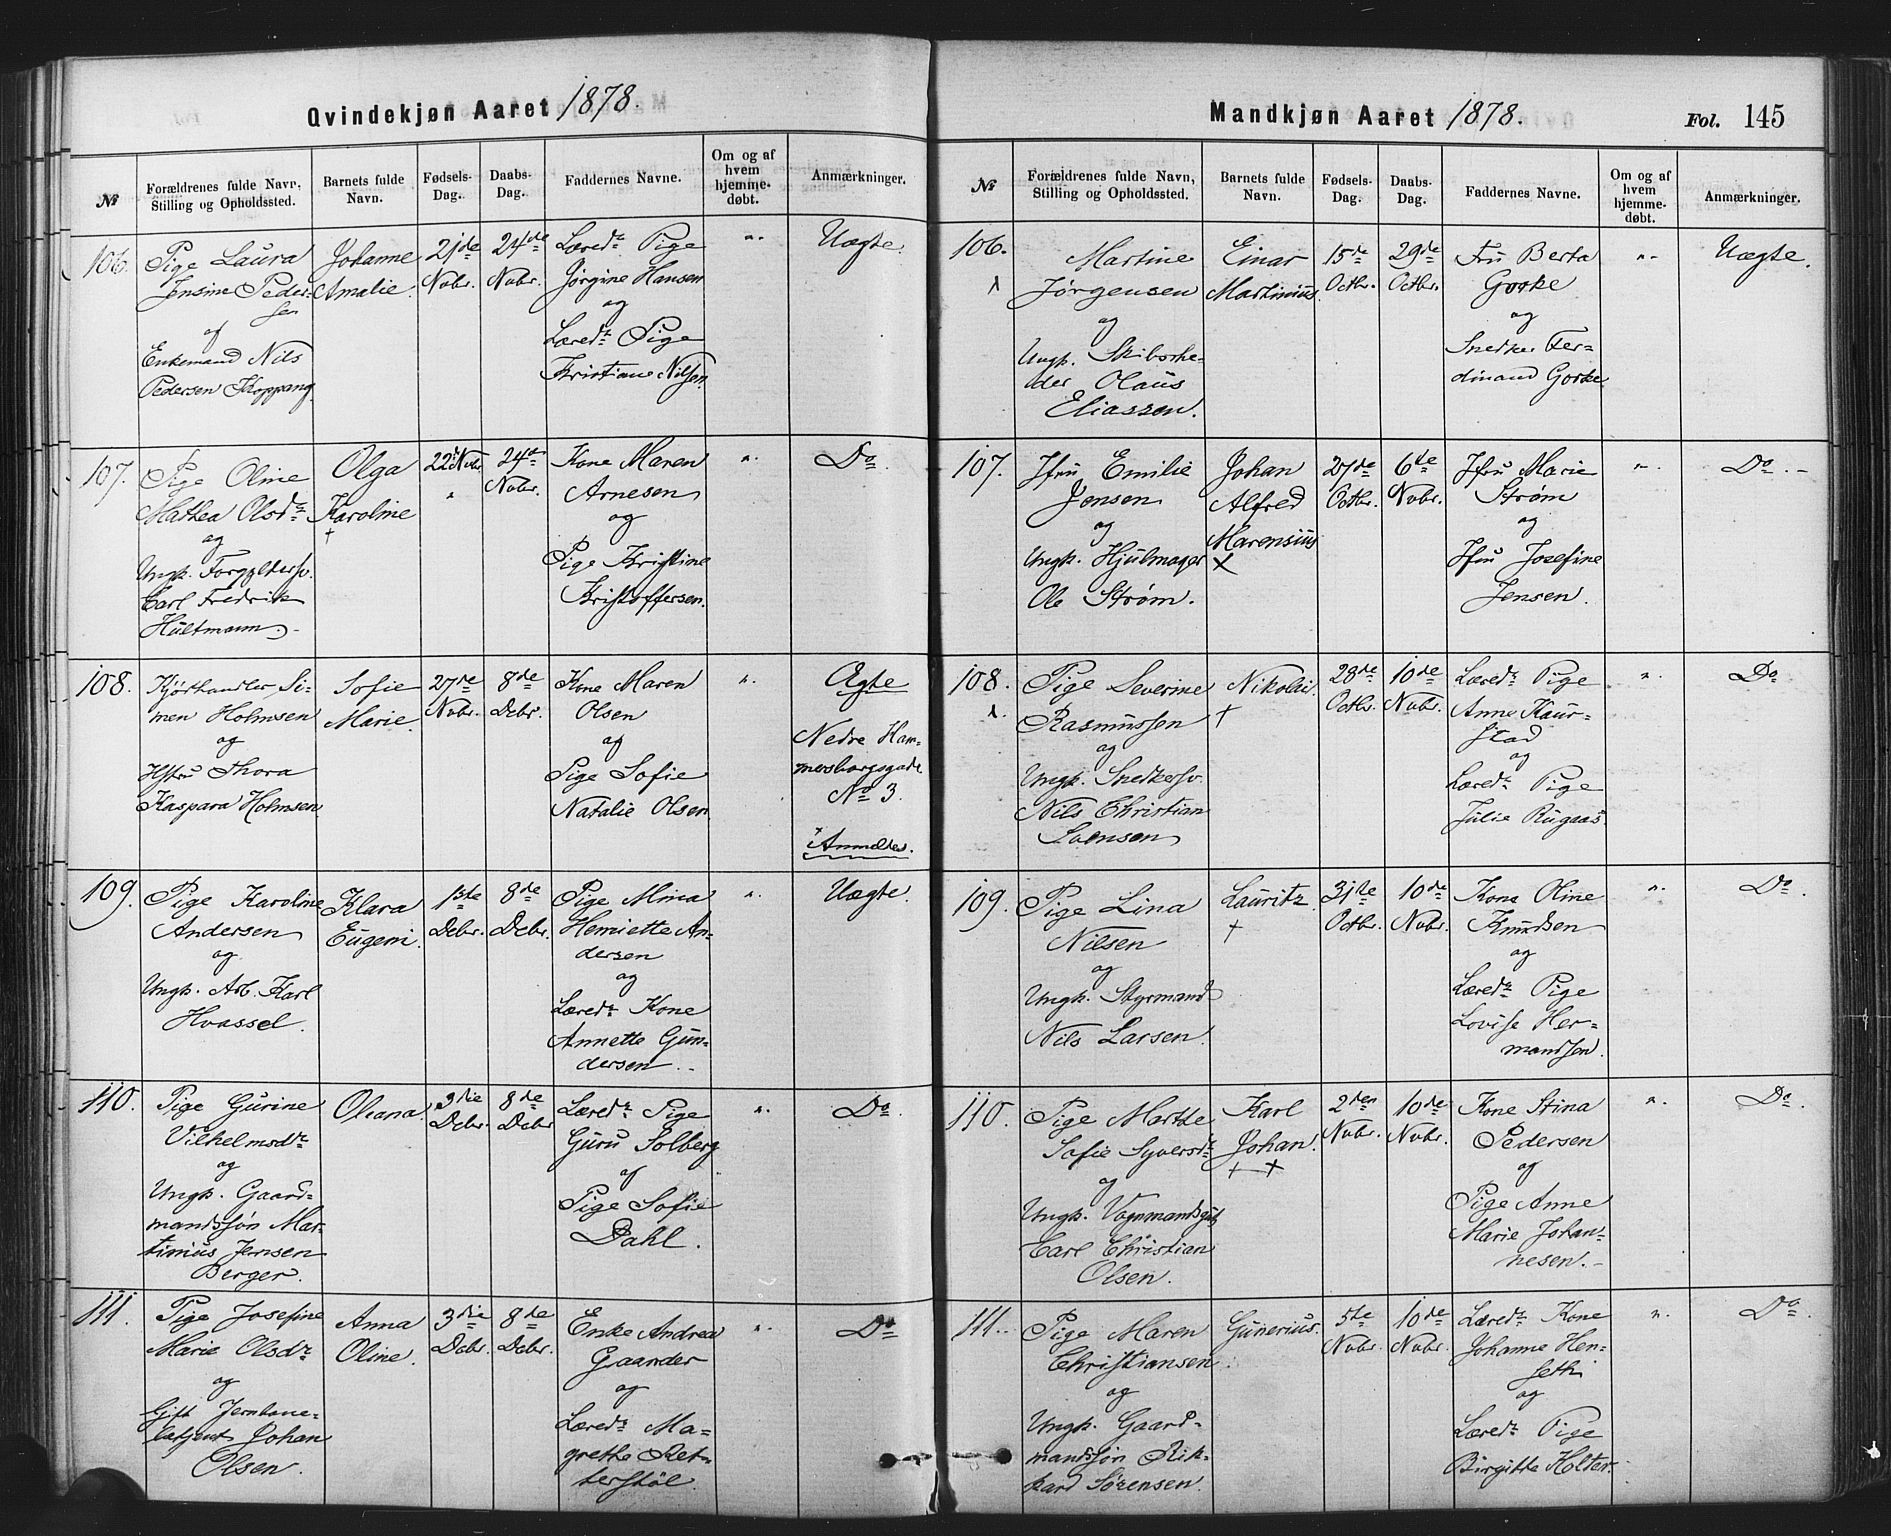 Qvindekjøn Aaret 1878.
№
Forældrenes fulde Navn,
Stilling og Opholdssted.
Barnets fulde
Navn.
Fødsels-
Dag.
Daabs-
Dag.
Faddernes Navne.
Om og af
hvem
hjemme-
døbt.
Anmærkninger.
106.
Pige Laura
Jensine Peder-
sen
af
Enkemand Nils
Pedersen Koppang.
Johanne
Amalie.
21de
Novbr.
24de
Novbr.
Læredr Pige
Jørgine Hansen
og
Læredr Pige
Kristiane Nilsen
"
Uægte.
107.
Pige Oline
Mathea Olsdr
og
Ungk. Forgyldersv.
Carl Fredrik
Hultmann.
Olga
Karoline
+
22d Novbr.
"
24de
Novbr.
Kone Maren
Arnesen
og
Pige Kristine
Kristoffersen.
"
Do.
108.
Kjødhandler Si-
men Holmsen
og
Hstru Thora
Kaspara Holmsen
Sofie
Marie.
27de
Novbr.
8de
Debr.
Kone Maren
Olsen
af
Pige Sofie
Natalie Olsen
"
Ægte
Nedre Ham-
mersborgsgade
No 3.
Anmeldes.
109.
Pige Karoline
Andersen
og
Ungk. Arb. Karl
Hvassel.
Klara
Eugeni.
1ste
Debr.
8de
Debr.
Pige Mina
Henriette An-
dersen
og
Læredr Kone
Annette Gun-
dersen.
"
Uægte.
110.
Pige Gurine
Vilhelmsdr
og
Ungk. Gaard-
mandssøn Mar-
tinius Jensen
Berger.
Oleana
3die
Debr.
8de
Debr
Læredr Pige
Guru Solberg
af
Pige Sofie
Dahl.
"
Do.
111.
Pige Josefine
Marie Olsdr
og
Gift Jernbane-
betjent Johan
Olsen.
Anna
Oline.
3die
Debr.
8de
Debr.
Enke Andrea
Gaarder
og
Læredr Ma-
grethe Ret-
terstøl.
"
Do
Mandkjøn Aaret 1878.
Fol. 145
№
Forældrenes fulde Navn,
Stilling og Opholdssted.
Barnets fulde
Navn.
Fødsels-
Dag.
Daabs-
Dag.
Faddernes Navne.
Om og af
hvem
hjemme-
døbt.
Anmærkninger.
106.
Martine
Jørgensen
og
Ungk. Skibsrhe-
der Olaus
Eliassen.
Einar
Martinius.
15de
Octbr.
29de
Octbr.
Fru Berta
Gorke
og
Snedker Fer-
dinand Gorke
"
Uægte.
107.
Jfru Emilie
Jensen
og
Ungk. Hjulmager
Ole Strøm.
Johan
Alfred
Marensius
x
27de
Octbr.
6te
Novbr.
Jfru Marie
Strøm
og
Jfru Josefine
Jensen.
"
Do.
108.
Pige Severine
Rasmussen
og
Ungk. Snedkersv.
Nils Christian
Svensen
Nikolai.
+
28de
Octbr.
10de
Novbr.
Læredr Pige
Anne Kaur-
stad
og
Læredr Pige
Julie Rugaas.
"
Do
109.
Pige Lina
Nilsen
og
Ungk. Styrmand
Nils Larsen.
Lauritz
+
31te
Octbr.
10de
Novbr.
Kone Oline
Knudsen
og
Læredr Pige
Lovise Her-
mandsen.
"
Do.
110.
Pige Marthe
Sofie Syversdr
og
Ungk. Vognmandsgut
Carl Christian
Olsen.
Karl
Johan.
+ +
2den
Novbr.
10de
Novbr.
Kone Stina
Pedersen
af
Pige Anne
Marie Johan-
nesen.
"
Do.
111.
Pige Maren
Christiansen
og
Ungk. Gaard-
mandssøn Rik-
kard Sørensen.
Gunerius.
5te
Novbr.
10de
Novbr.
Læredr Kone
Johanne Hen-
seth
og
Læredr Pige
Birgitte Holter.
"
Do.